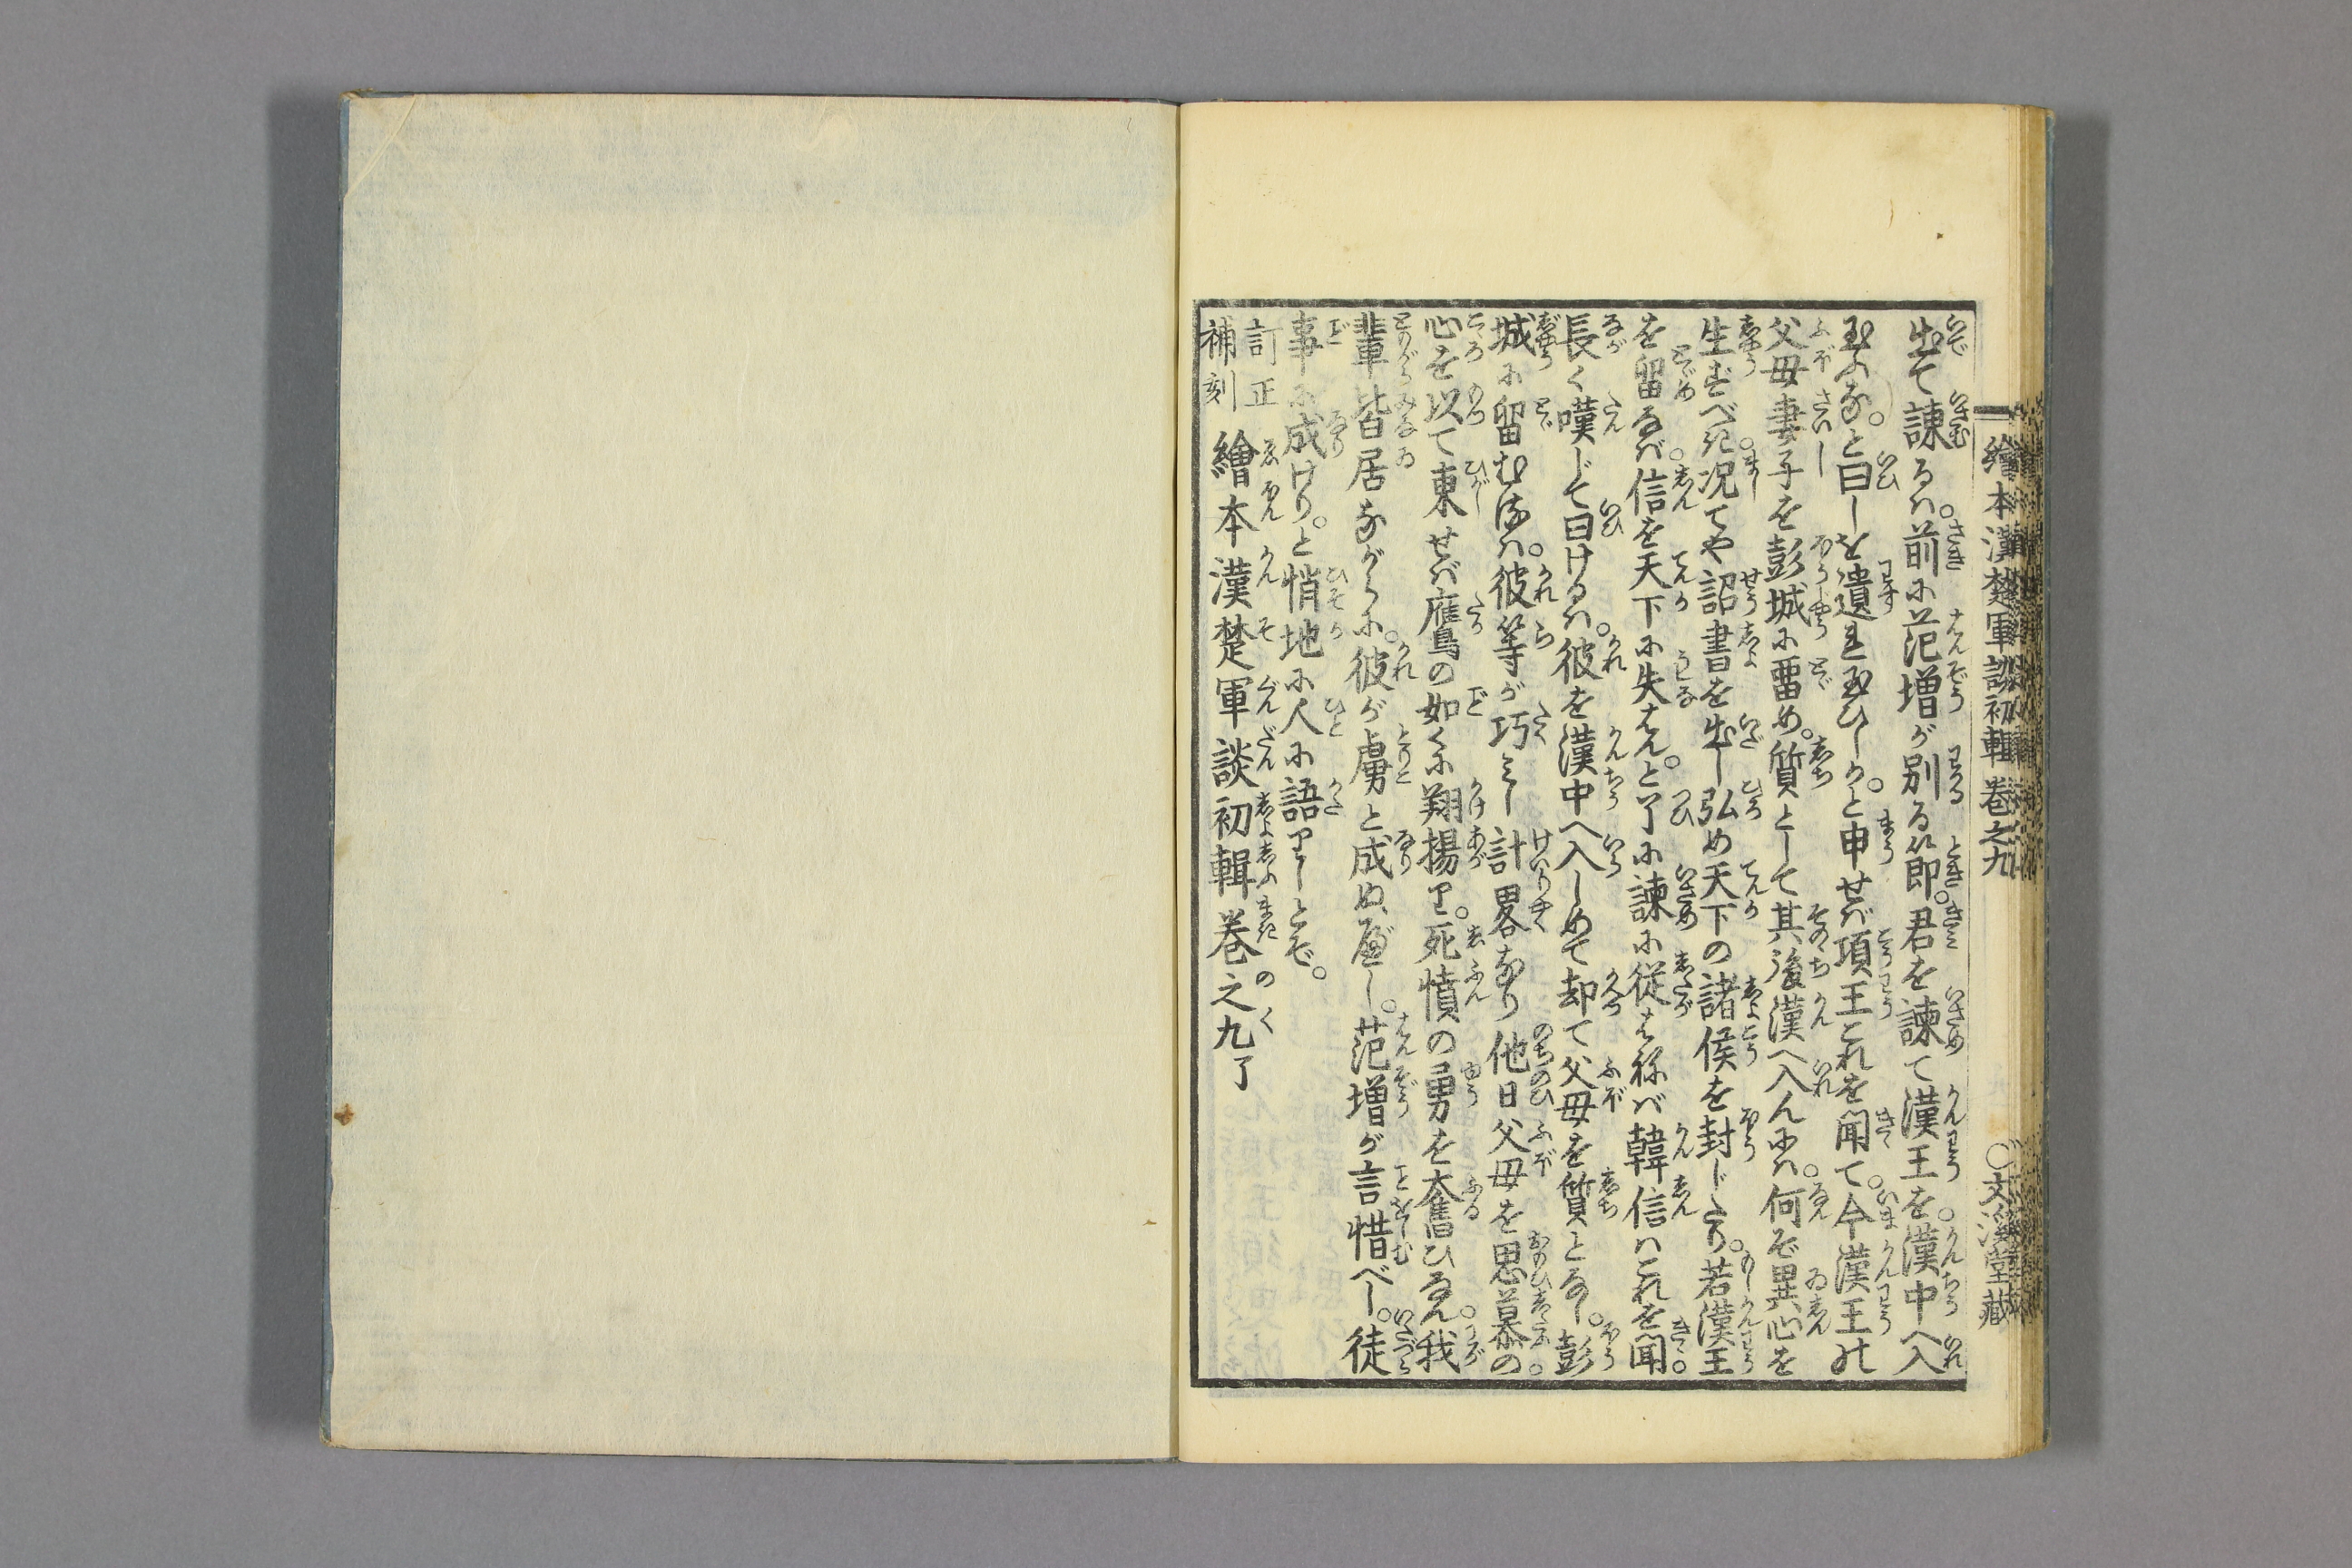 繪本漢楚軍談初輯 巻之九 ○文溪堂藏
出て諫るハ。前に范増が別るゝ即。君を諫て漢王を漢中へ入
玉ふな。と曰しを遺れ玉ひしか。と申せバ項王これを聞て。今漢王の
父母妻子を彭城に畱め。質として其後漢へ入んにハ。何ぞ異心を
生ずべき。况てや詔書を出し弘め天下の諸侯を封じたり。若漢王
を留るなバ。信を天下に失はん。と了に諫に従はねバ韓信ハこれを聞。
長く嘆じて曰けるハ。彼を漢中へ入しめて却て父母を質となし。彭
城に留むるハ。彼等が巧みし計畧なり他日父母を思慕の。
心を以て東せバ鷹の如くに翔揚り。死憤の勇を奮ひなん。我
輩皆居ながらに。彼が虜と成ぬべし。范増が言惜べし。徒
事に成けり。と悄地に人に語りしとぞ。
訂正
補刻 繪本漢楚軍談初輯巻之九了